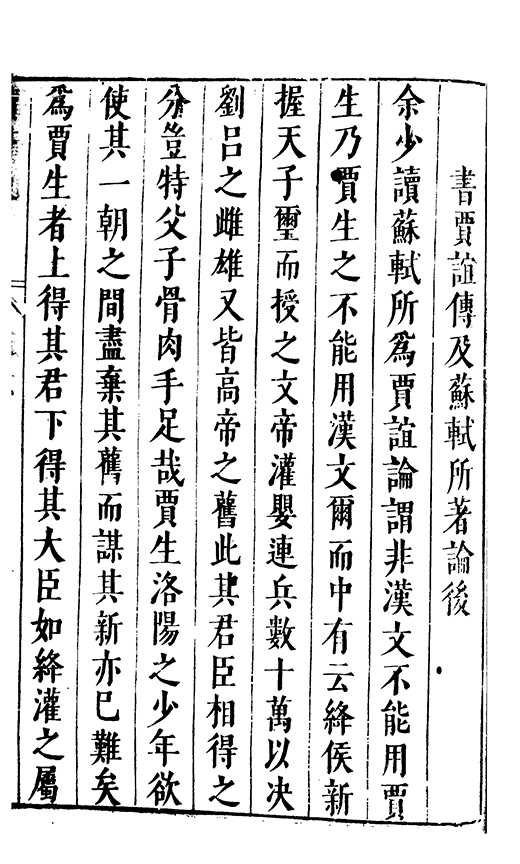 書賈誼傳及蘇軾所著論後
余少讀蘇軾所爲賈誼論謂非漢文不能用賈
生乃賈生之不能用漢文爾而中有云絳侯新
握天子璽而授之文帝灌嬰連兵數十萬以决
劉呂之雌雄又皆高帝之舊此其君臣相得之
分豈特父子骨肉手足哉賈生洛陽之少年欲
使其一朝之間盡棄其舊而謀其新亦已難矣
爲賈生者上得其君下得其大臣如絳灌之屬